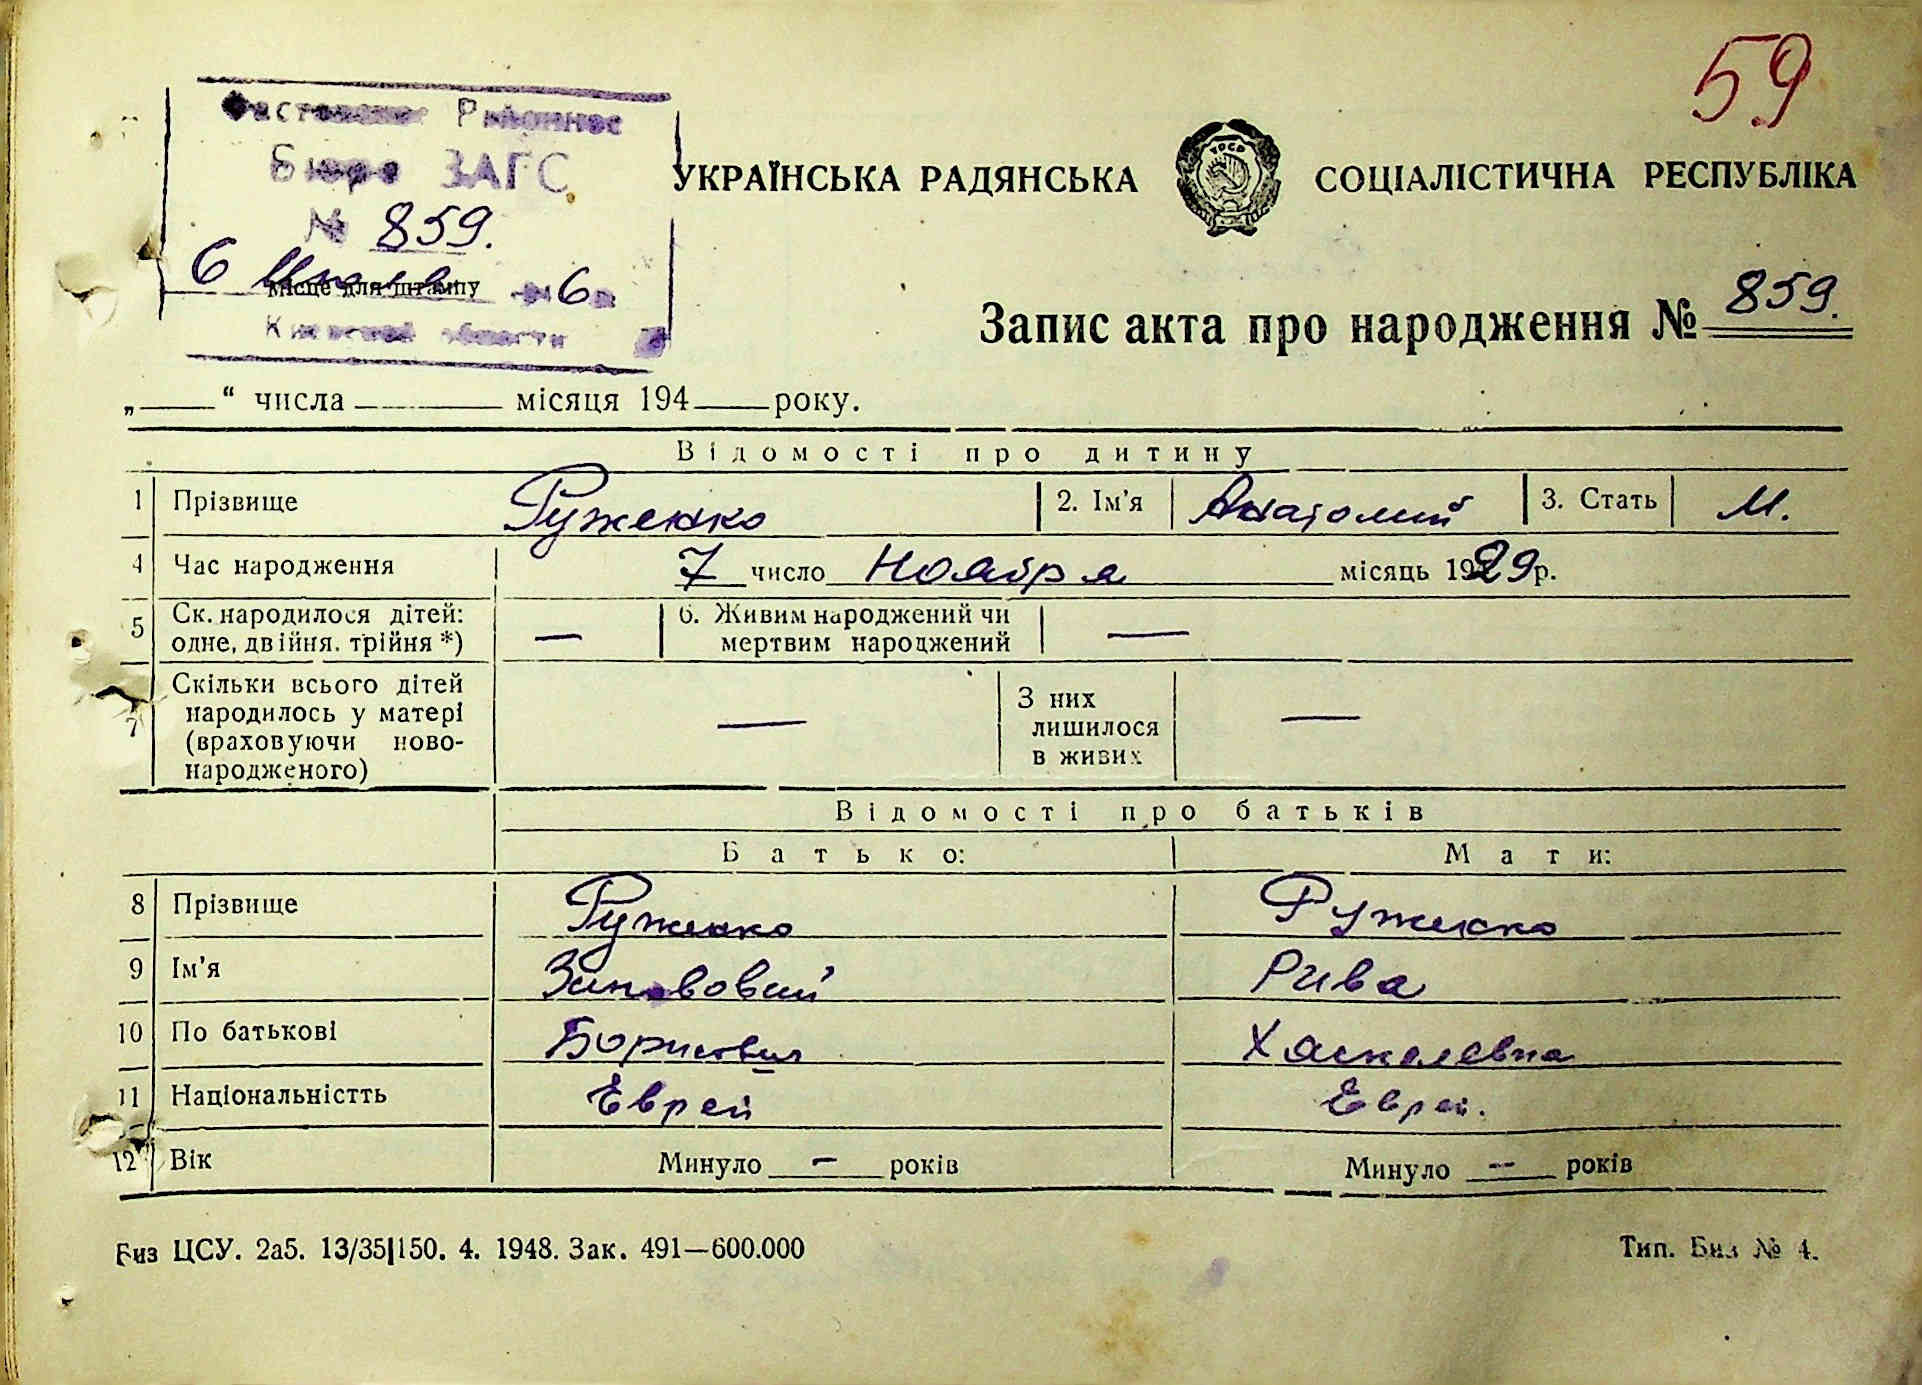 59
Фастовское Районное
Бюро ЗАГС
№ 859.
УКРАЇНСЬКА РАДЯНСЬКА СОЦІАЛІСТИЧНА РЕСПУБЛІКА
6
місце для штампу
Киевской области
Запис акта про народження № 859.
„ “ числа місяця 194 року.
Відомості про дитину
1 Прізвище Руженко 2. Ім'я Анатолий 3. Стать М.
4 Час народження 7 число Ноября місяць 1929р.
5 Ск. народилося дітей: одне, двійня, трійня *) — 6. Живим народжений чи мертвим народжений —
7 Скільки всього дітей народилось у матері (враховуючи ново-народженого) — З них лишилося в живих —
Відомості про батьків
Батько: Мати:
8 Прізвище Руженко Руженко
9 Ім'я Рива
10 По батькові Борисович Хаскелевна
11 Національністть Еврей Еврей.
12 Вік Минуло – років Минуло – років
Биз ЦСУ. 2а5. 13/35|150. 4. 1948. Зак. 491—600.000 Тип. Биз № 4.